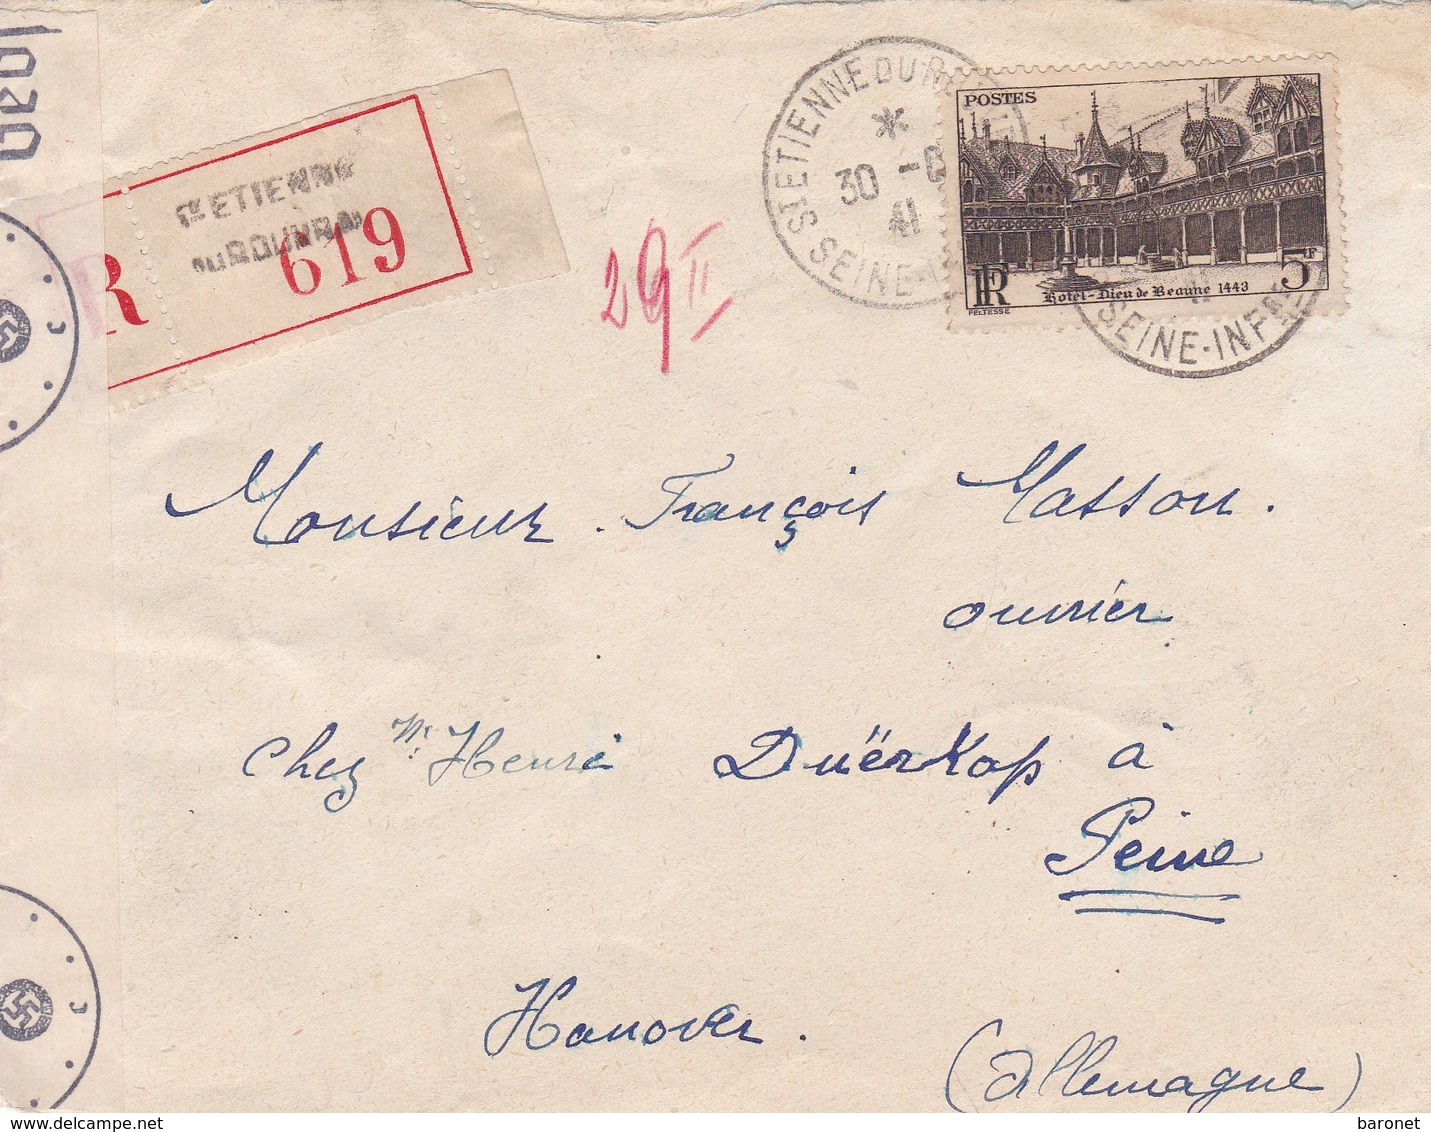 Geöf
R
ST ETIENNE
DU ROUVRAY
619
29 II
ST ETIENNE DU R
*
30 -
41
SEINE-I
POSTES
RF
Hotel-Dieu de Beaune 1443
5F
FELTESSE
SEINE-INFRE
C
C
Monsieur. François Masson.
ouvrier
Chez Mr. Henri Duërkop à
Peine
Hanover.
(Allemagne)
baronet